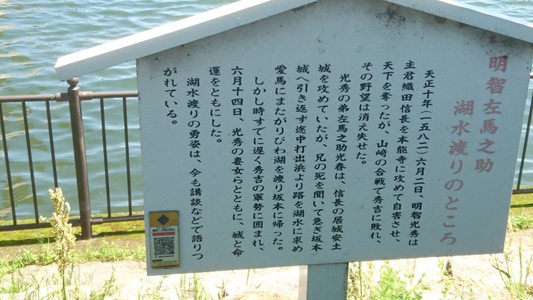 明智左馬之助
湖水渡りのところ
天正十年(一五八二)六月二日、明智光秀は
主君織田信長を本能寺に攻めて自害させ、
天下を奪ったが、山崎の合戦で秀吉に敗れ、
その野望は消え失せた。
光秀の弟左馬之助光春は、信長の居城安土
城を攻めていたが、兄の死を聞いて急ぎ坂本
城へ引き返す途中打出浜より路を湖水に求め
愛馬にまたがりびわ湖を渡り坂本に帰った。
しかし時すでに遅く秀吉の軍勢に囲まれ、
六月十四日、光秀の妻女らとともに、城と命
運をともにした。
湖水渡りの勇姿は、今も講談などで語りつ
がれている。